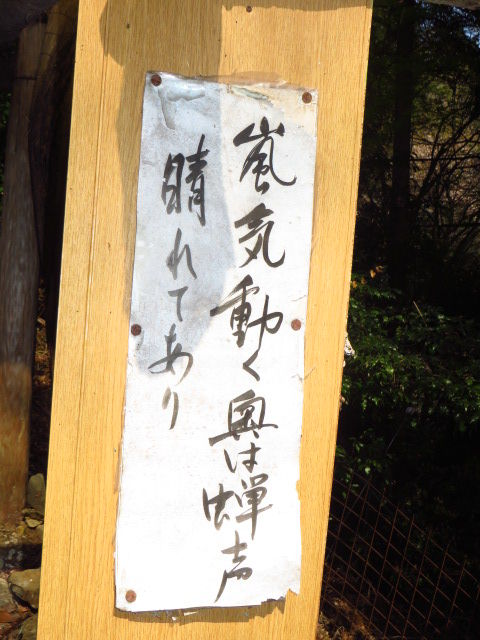 嵐気動く奥は蝉声
晴れてあり